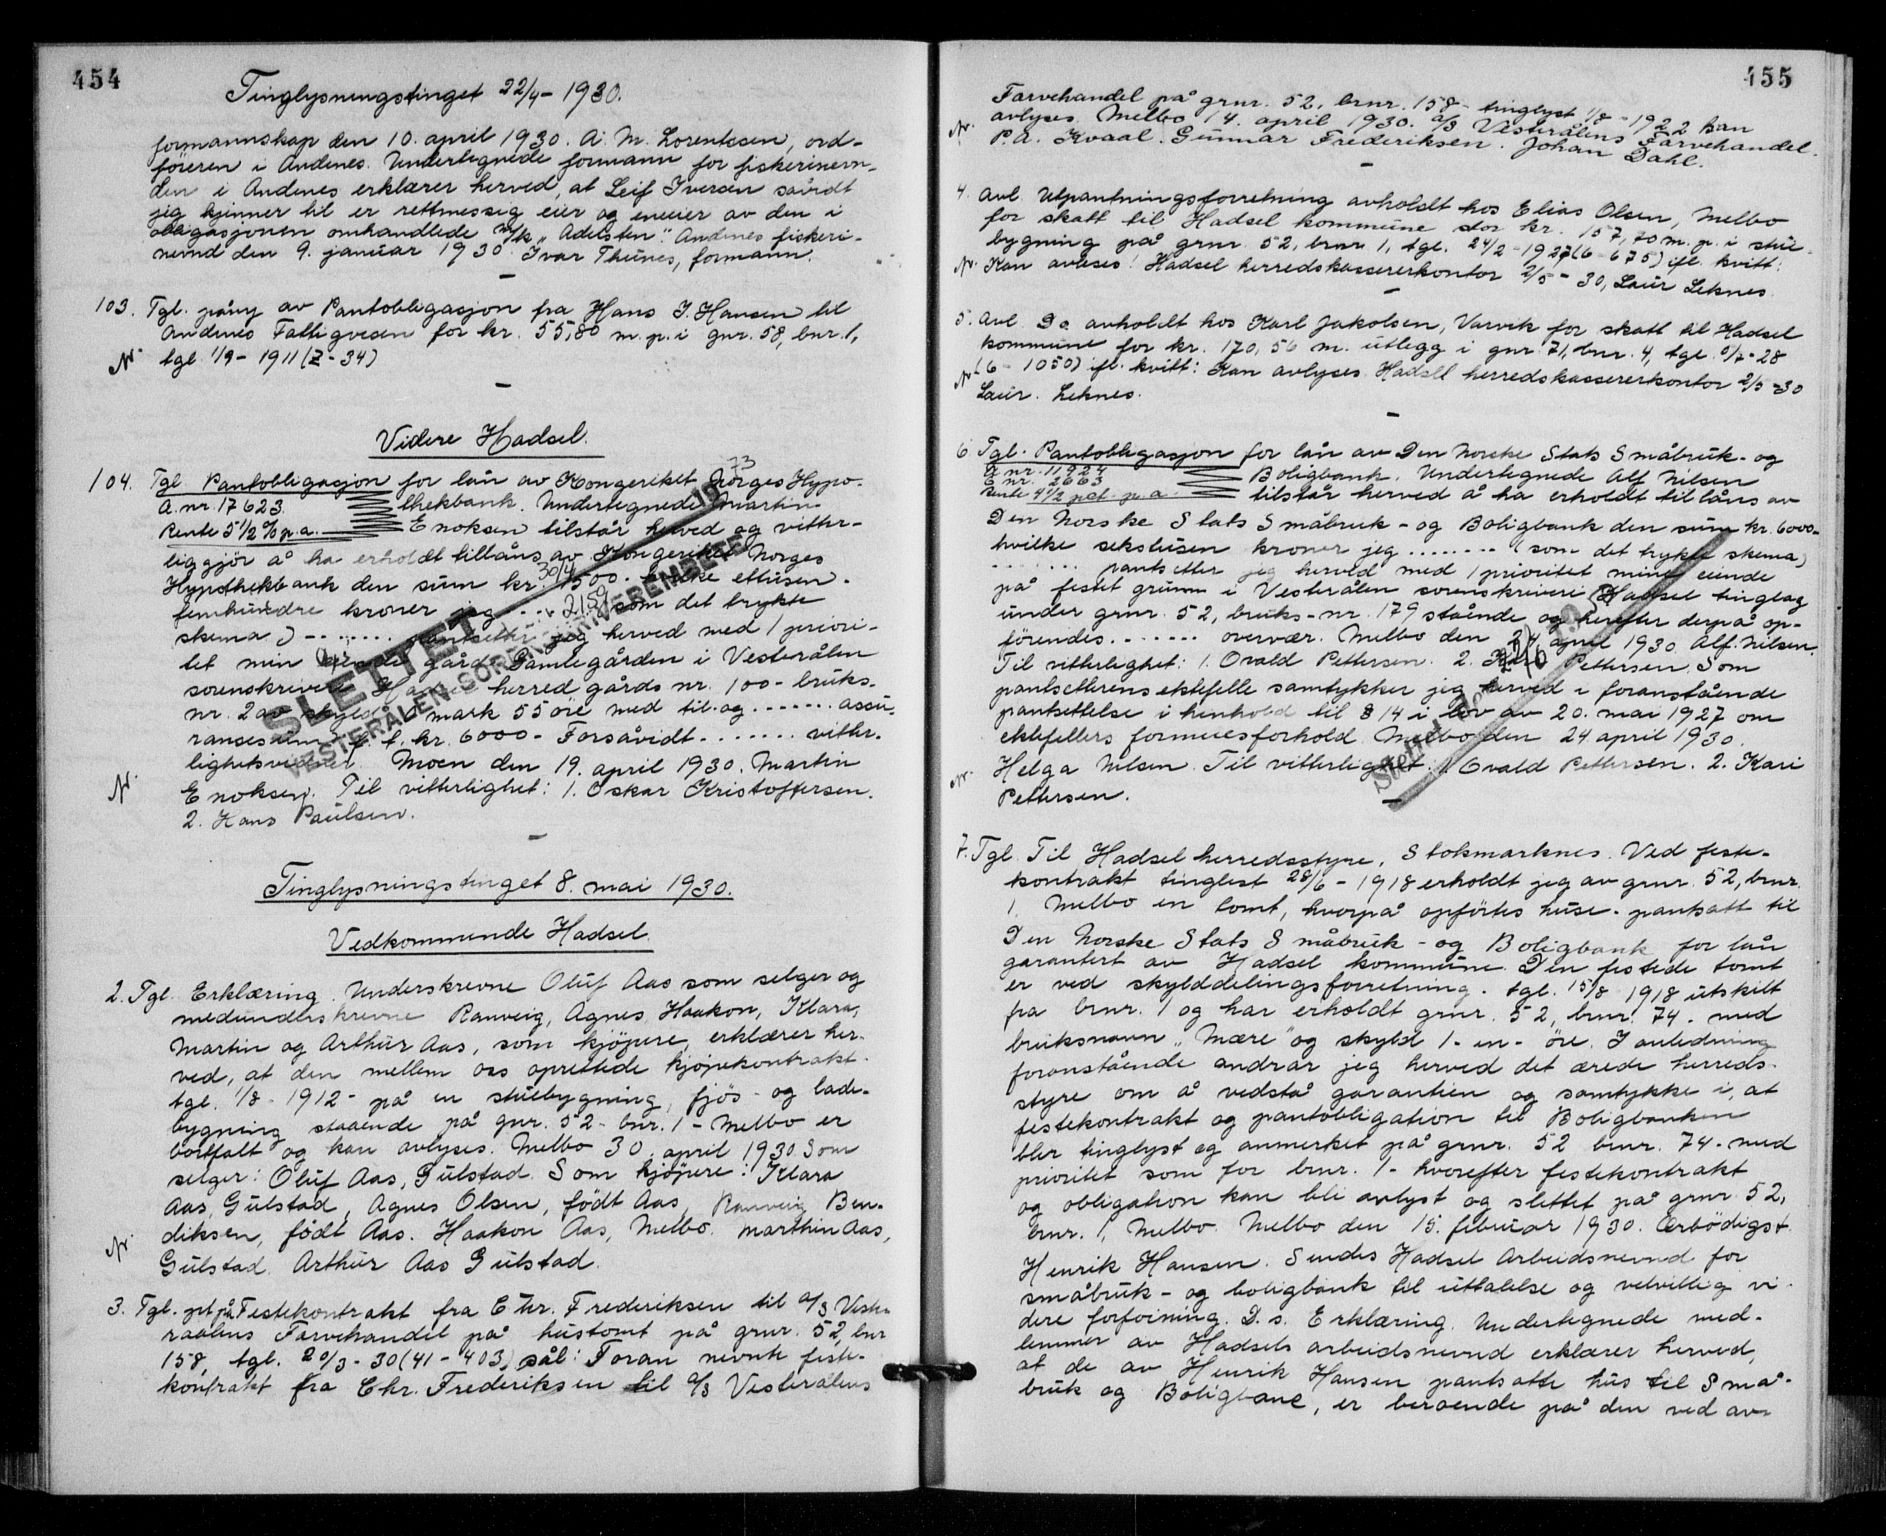 454
Tinglysningstinget 22/4 - 1930.
formannskap den 10. april 1930. A. M. Lorentssen, ord-
föreren i Andenes. Undertegnede formann for fiskerinevn-
den i Andenes erklærer herved, at Leif Iversen såvidt
jeg kjenner til er rettmessig eier og eneeier av den i
obligasjonen omhandlede m/k "Adelsten". Andenes fiskeri-
nevnd den 9. januar 1930. Ivar Thunes, formann.
103. Tgl. påny av Pantobligasjon fra Hans J. Hansen til
Andenes Fattigvesen for kr. 55,80 m. p. i gnr. 58, bnr. 1,
tgl 1/9 - 1911 (Z - 34)
Videre Hadsel.
104. Tgl Pantobligasjon for lån av Kongeriket Norges Hypo-
A. nr. 17623. thekbank. Undertegnede Martin
Rente 5 1/2 % p. a. Enoksen tilstår herved og vitter-
liggjör å ha erholdt tillåns av Kongeriket Norges
Hypothekbank den sum kr. 1500 - hvilke ettusen-
femhundre kroner jeg ...... (som det trykte
skema) - ...... pantsetter jeg herved med 1 priori-
tet min eiende gård Gamlegården i Vesterålen
sorenskriveri Hadsel herred, gårds nr. 100 - bruks-
nr. 2 av skyld mark 55 öre med til- og ...... assu-
ransesum f. t. kr. 6000 - Forsåvidt ...... vitter-
lighetsvidner. Moen den 19. april 1930. Martin
Enoksen. Til vitterlighet: 1. Oskar Kristoffersen.
2. Hans Paulsen.
SLETTET 30/4 1973
2159
VESTERÅLEN SORENSKRIVEREMBETE
Tinglysningstinget 8. mai 1930.
Vedkommende Hadsel.
2. Tgl. Erklæring. Underskrevne Oluf Aas som selger og
medunderskrevne Ranveig, Agnes, Haakon, Klara,
Martin og Arthur Aas, som kjöpere, erklærer her-
ved, at den mellem oss oprettede kjöpekontrakt
tgl. 1/8 - 1912 - på en stuebygning, fjös - og lade-
bygning staaende på gnr. 52 - bnr. 1 - Melbo er
bortfalt og kan avlyses. Melbo 30. april 1930. Som
selger: Oluf Aas, Gulstad. Som kjöpere: Klara
Aas, Gulstad, Agnes Olsen, födt Aas, Ranveig Ben-
diksen, födt Aas. Haakon Aas, Melbo. Marthin Aas,
Gulstad. Arthur Aas Gulstad.
3. Tgl. pt på Festekontrakt fra Chr. Frederiksen til a/s Veste-
raalens Farvehandel på hustomt på grnr. 52, bnr
158, tgl. 20/3 - 30 (41 - 403) sål: Foran nevnte feste-
kontrakt fra Chr. Frederiksen til a/s Vesterålens
455
Farvehandel på grnr. 52, brnr. 158 - tinglyst 1/8 - 1922 kan
avlyses. Melbo 14. april 1930. a/s Vesterålens Farvehandel.
P. A. Kvaal. Gunnar Frederiksen. Johan Dahl.
4. Avl Utpantningsforretning avholdt hos Elias Olsen, Melbo
for skatt til Hadsel kommune stor kr. 157,70 m. p. i stue-
bygning på grnr. 52, brnr. 1, tgl. 24/2 - 1927 (6 - 675) ifl. kvitt:
Kan avleses! Hadsel herredskassererkontor 2/5 - 30, Laur Leknes.
5. Avl Do avholdt hos Karl Jakobsen, Varvik for skatt til Hadsel
kommune for kr. 170,56 m. utlegg i gnr. 71, bnr. 4, tgl - 28
(6 - 1050) ifl. kvitt: Kan avlyses. Hadsel herredskassererkontor 2/5 - 30
Laur. Leknes.
6 Tgl. Pantobligasjon for lån av Den Norske Stats Småbruk- og
A nr. 11924 Boligbank. Undertegnede Alf Nilsen
E nr. 2663
Rente 4 1/2 pct. p. a. tilstår herved å ha erholdt tillåns av
Den Norske Stats Småbruk - og Boligbank den sum kr. 6000 -
hvilke sekstusen kroner jeg ........ (som det trykte skema)
...... pantsetter jeg herved med 1 prioritet mine eiende
på festet grunn i Vesterålen sorenskriveri Hadsel tinglag
under grnr. 52, bruks - nr. 179 stående og herefter derpå op-
förendes ....... overvær. Melbo den 24 april 1930. Alf. Nilsen.
Til vitterlighet: 1. Ovald Pettersen. 2. Kari Pettersen. Som
pantsetterens ektefelle samtykker jeg herved i foranstående
pantsettelse i henhold til § 14 i lov av 20. mai 1927 om
ektefellers formuesforhold. Melbo den 24 april 1930.
Helga Nilsen. Til vitterlighet: 1. Ovald Pettersen. 2. Kari
Pettersen.
Slettet
7. Tgl. Til Hadsel herredsstyre, Stokmarknes. Ved feste-
kontrakt tinglest 28/6 - 1918 erholdt jeg av grnr. 52, brnr.
1, Melbo en tomt, hvorpå opförtes huse - pantsatt til
Den Norske Stats Småbruk - og Boligbank for lån
garantert av Hadsel kommune. Den festede tomt
er ved skylddelingsforretning - tgl. 15/8 1918 utskilt
fra brnr. 1 og har erholdt grnr. 52, brnr. 74 - med
bruksnavn "Mære" og skyld 1 - en - öre. I anledning
foranstående andrar jeg herved det ærede herreds-
styre om å vedstå garantien og samtykke i, at
festekontrakt og pantobligation til Boligbanken
blir tinglyst og anmerket på grnr. 52 brnr. 74 - med
prioritet som for brnr. 1 - hvorefter festekontrakt
og obligation kan bli avlyst og slettet på grnr 52,
brnr. 1, Melbo. Melbo den 15. februar 1930. Ærbödigst
Henrik Hansen. Sendes Hadsel Arbeidsnevnd for
småbruk - og boligbank til uttalelse og velvillig vi-
dere forfoining. D. s. Erklæring. Undertegnede med-
lemmer av Hadsels arbeidsnevnd erklærer herved,
at de av Henrik Hansen pantsatte hus til Små-
bruk og Boligbank, er beroende på den ved av-